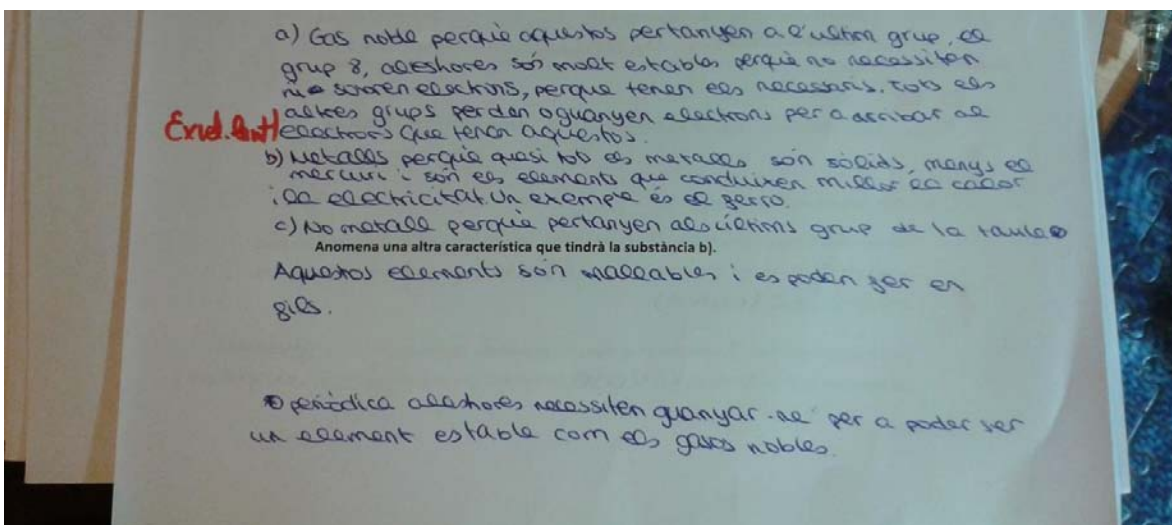 a) Gas noble perquè aquestos pertanyen a l'ultim grup, el
grup 8, aleshores són molt estables perquè no necessiten
ni sobren electrons, perque tenen els necessaris. Tots els
altres grups perden o guanyen electrons per a arribar al
electrons que tenen aquestos.
b) Metalls perquè quasi tots els metalls són sòlids, menys el
mercuri i són els elements que conduixen millor el calor
i la electricitat. Un exemple és el ferro.
c) No metall perquè pertanyen als últims grup de la taula
Anomena una altra característica que tindrà la substància b).
Aquestos elements són maleables i es poden fer en
fils.
periòdica aleshores necessiten guanyar-ne per a poder ser
un element estable com els gasos nobles.